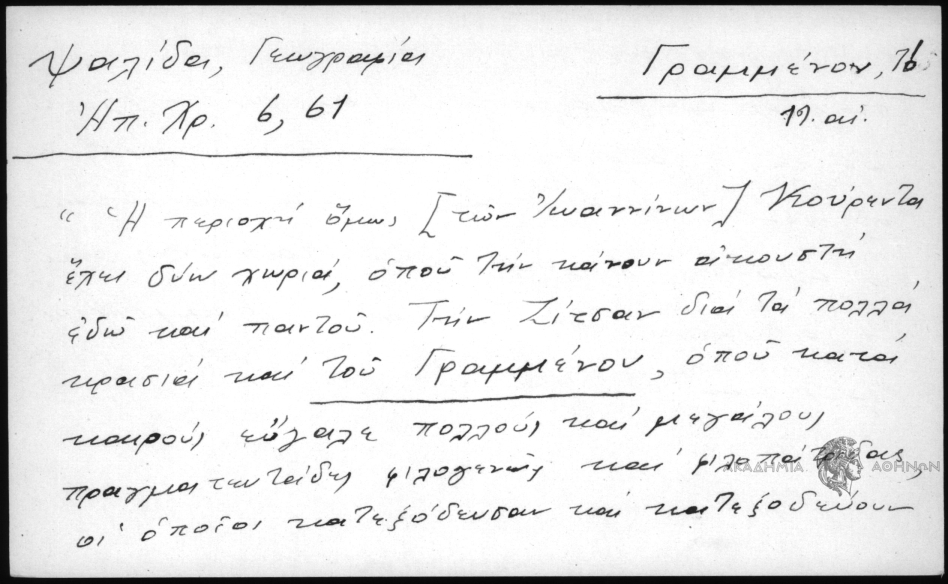 Ψαλίδα, Γεωγραφία
Ἠπ. Χρ. 6, 61
Γραμμένον, τό
19. αἰ.
" Ἡ περιοχή ὅμως [τῶν Ἰωαννίνων] Κούρεντα
ἔχει δύω χωριά, ὁποῦ τήν κάνουν ἀκουστή
ἐδῶ καί παντοῦ. Τήν Ζίτσαν διά τά πολλά
κρασιά καί τοῦ Γραμμένου, ὁποῦ κατά
καιρούς εὔγαλε πολλούς καί μεγάλους
πραγματευτάδες φιλογενεῖς καί φιλοπάτριδας,
οἱ ὁποῖοι κατεξόδευσαν καί κατεξοδεύουν
ΑΚΑΔΗΜΙΑ ΑΘΗΝΩΝ